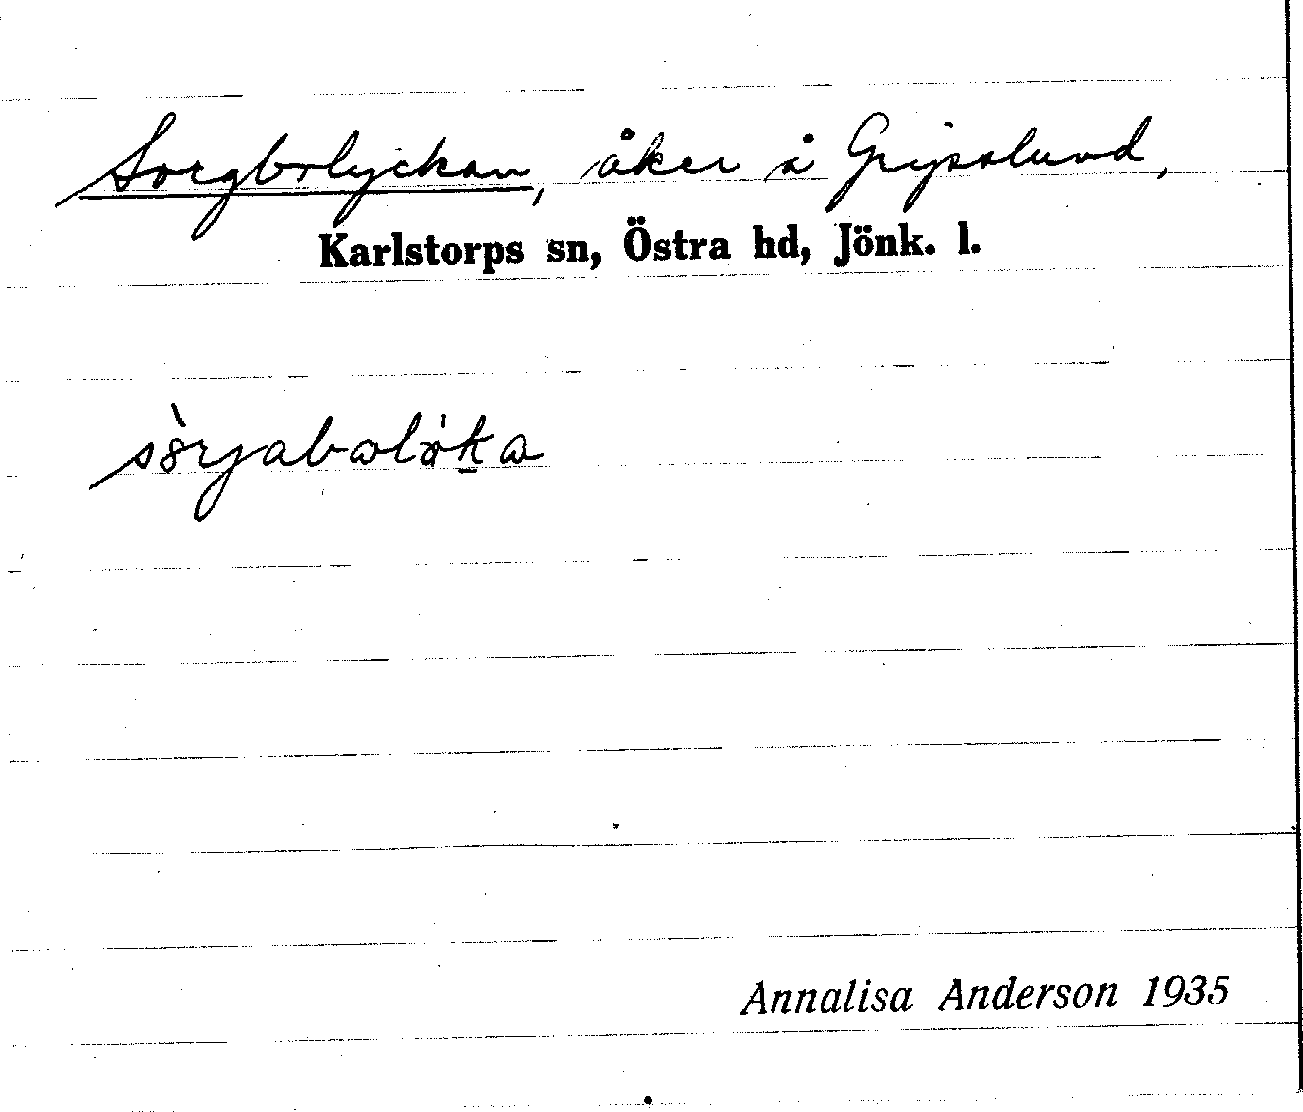 Sorgbolyckan, åker å Gripslund,
Karlstorps sn, Östra hd, Jönk. l.
Annalisa Anderson 1935